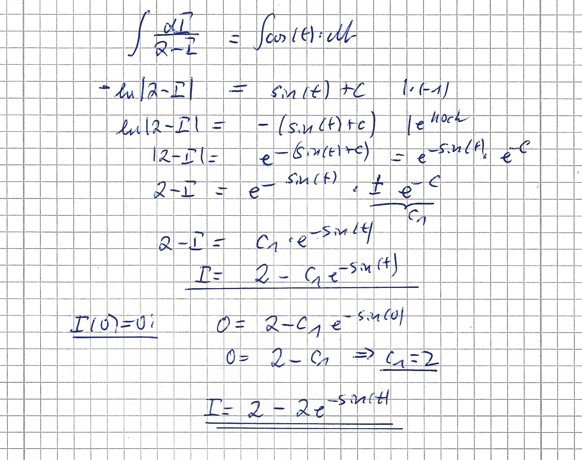 ∫ dI/(2-I) = ∫cos(t)·dt
-ln|2-I| = sin(t)+C |·(-1)
ln|2-I| = -(sin(t)+c) |e hoch
|2-I| = e^-(sin(t)+c) = e^-sin(t) · e^-C
2-I = e^-sin(t) · ± e^-C
C₁
2-I = C₁·e^-sin(t)
I = 2 - C₁e^-sin(t)
I(0)=0: 0 = 2-C₁e^-sin(0)
0 = 2-C₁ ⇒ C₁=2
I = 2 - 2e^-sin(t)